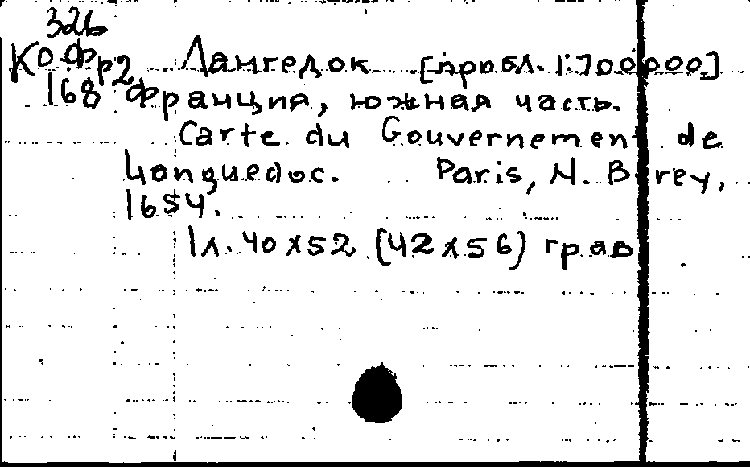 326
Ко Фр2 Лангедок [прибл. 1:700000]
168 Франция, южная часть.
Carte du Gouvernement de
Languedoc. Paris, N. Berey,
1654.
1л. 40x52 (42x56) грав